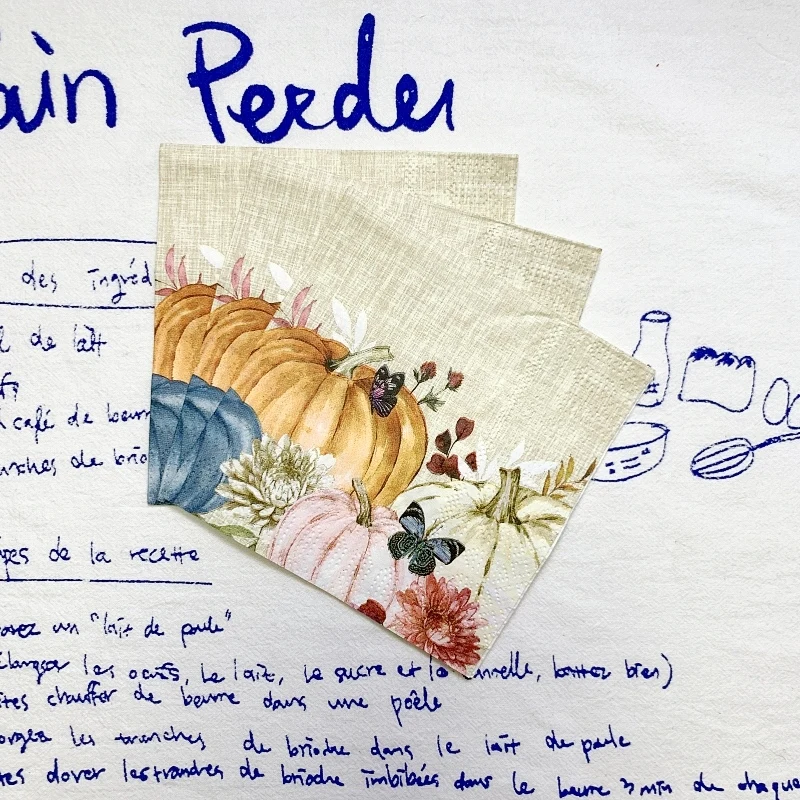 ain Perdu
des ingréd
de lait
café de beurr
anches de brio
pes de la recette
un "lait de poule"
élanger les oeufs, le lait, le sucre et la nnelle, battez bien)
ites chauffer de beurre dans une poêle
les tranches de brioche dans le lait de poule
tes dorer les tranches de brioche imbibées dans le beurre 3 min de chaque